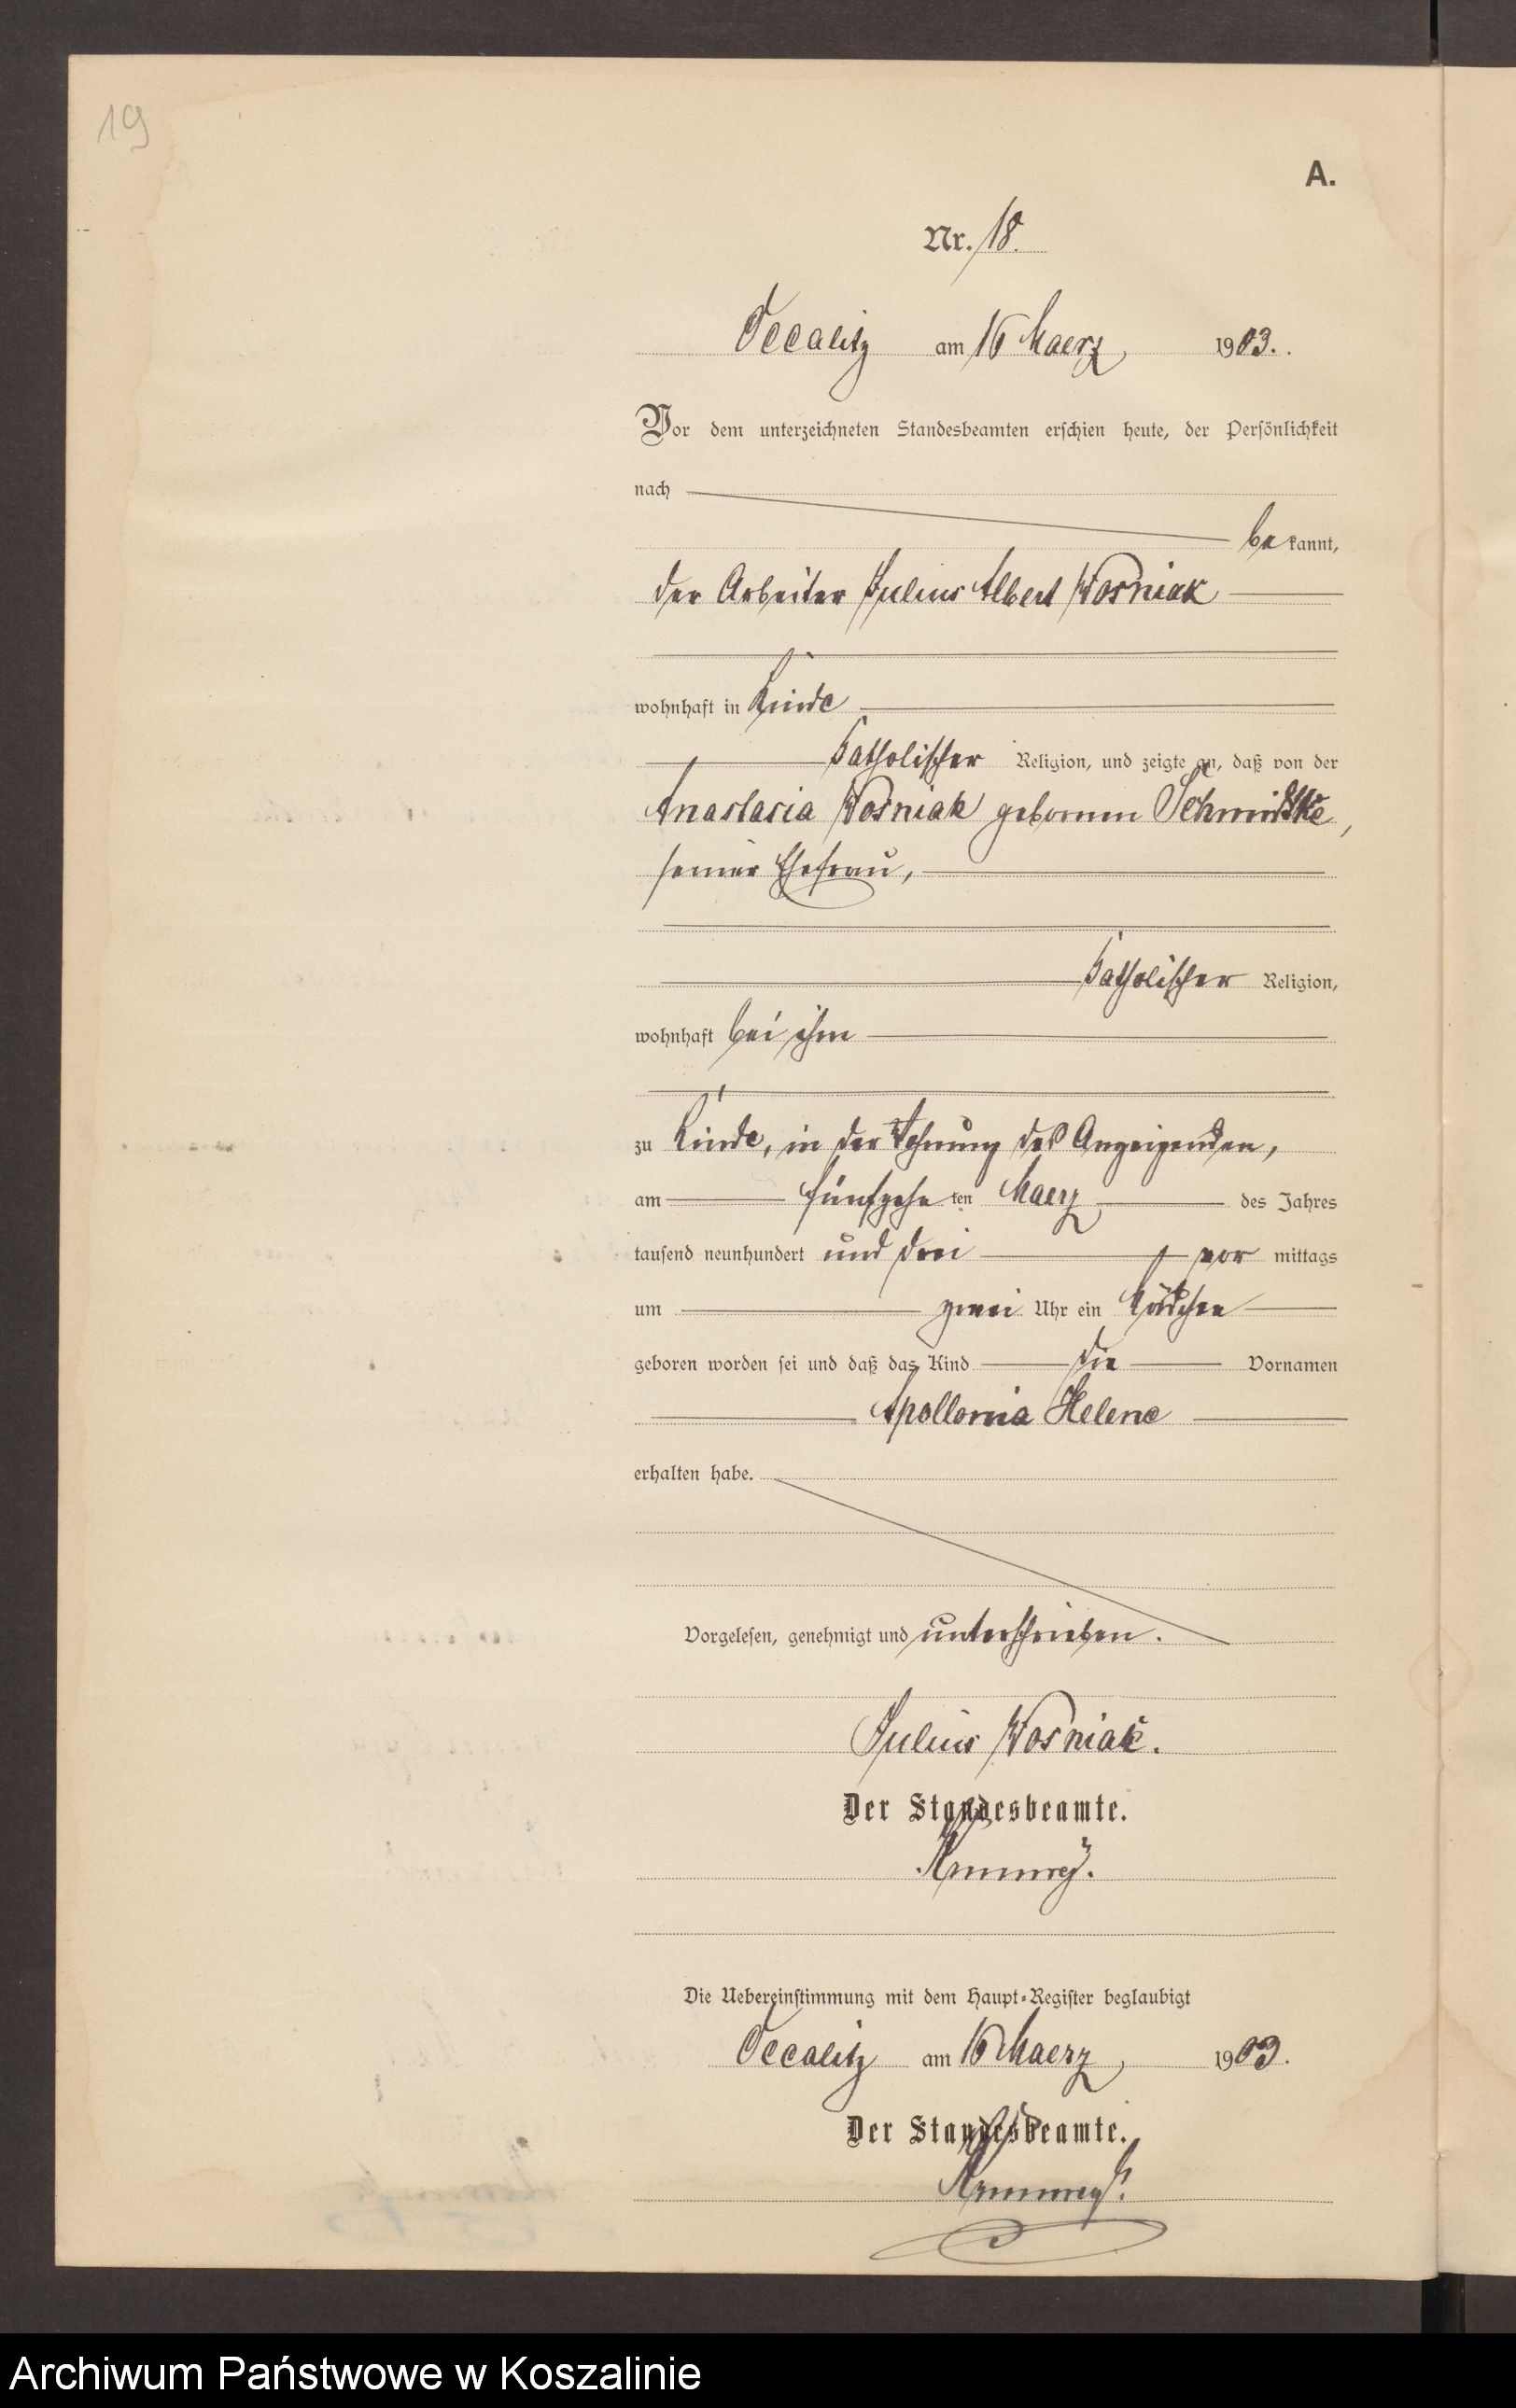 19
A.
Nr. 18.
Occalitz am 16 Maerz 1903.
Vor dem unterzeichneten Standesbeamten erschien heute, der Persönlichkeit
nach
bekannt,
der Arbeiter Julius Albert Wosniak
wohnhaft in Linde
katholischer Religion, und zeigte an, daß von der
Anastasia Wosniak geborenen Schmidtke,
seiner Ehefrau,
katholischer Religion,
wohnhaft bei ihm
zu Linde, in der Wohnung des Anzeigenden,
am fünfzehnten Maerz des Jahres
tausend neunhundert und drei vormittags
um zwei Uhr ein Mädchen
geboren worden sei und daß das Kind die Vornamen
Apollonia Helene
erhalten habe.
Vorgelesen, genehmigt und unterschrieben.
Julius Wosniak.
Der Standesbeamte.
Die Uebereinstimmung mit dem Haupt-Register beglaubigt
Occalitz am 16 Maerz 1903.
Der Standesbeamte.
Archiwum Państwowe w Koszalinie